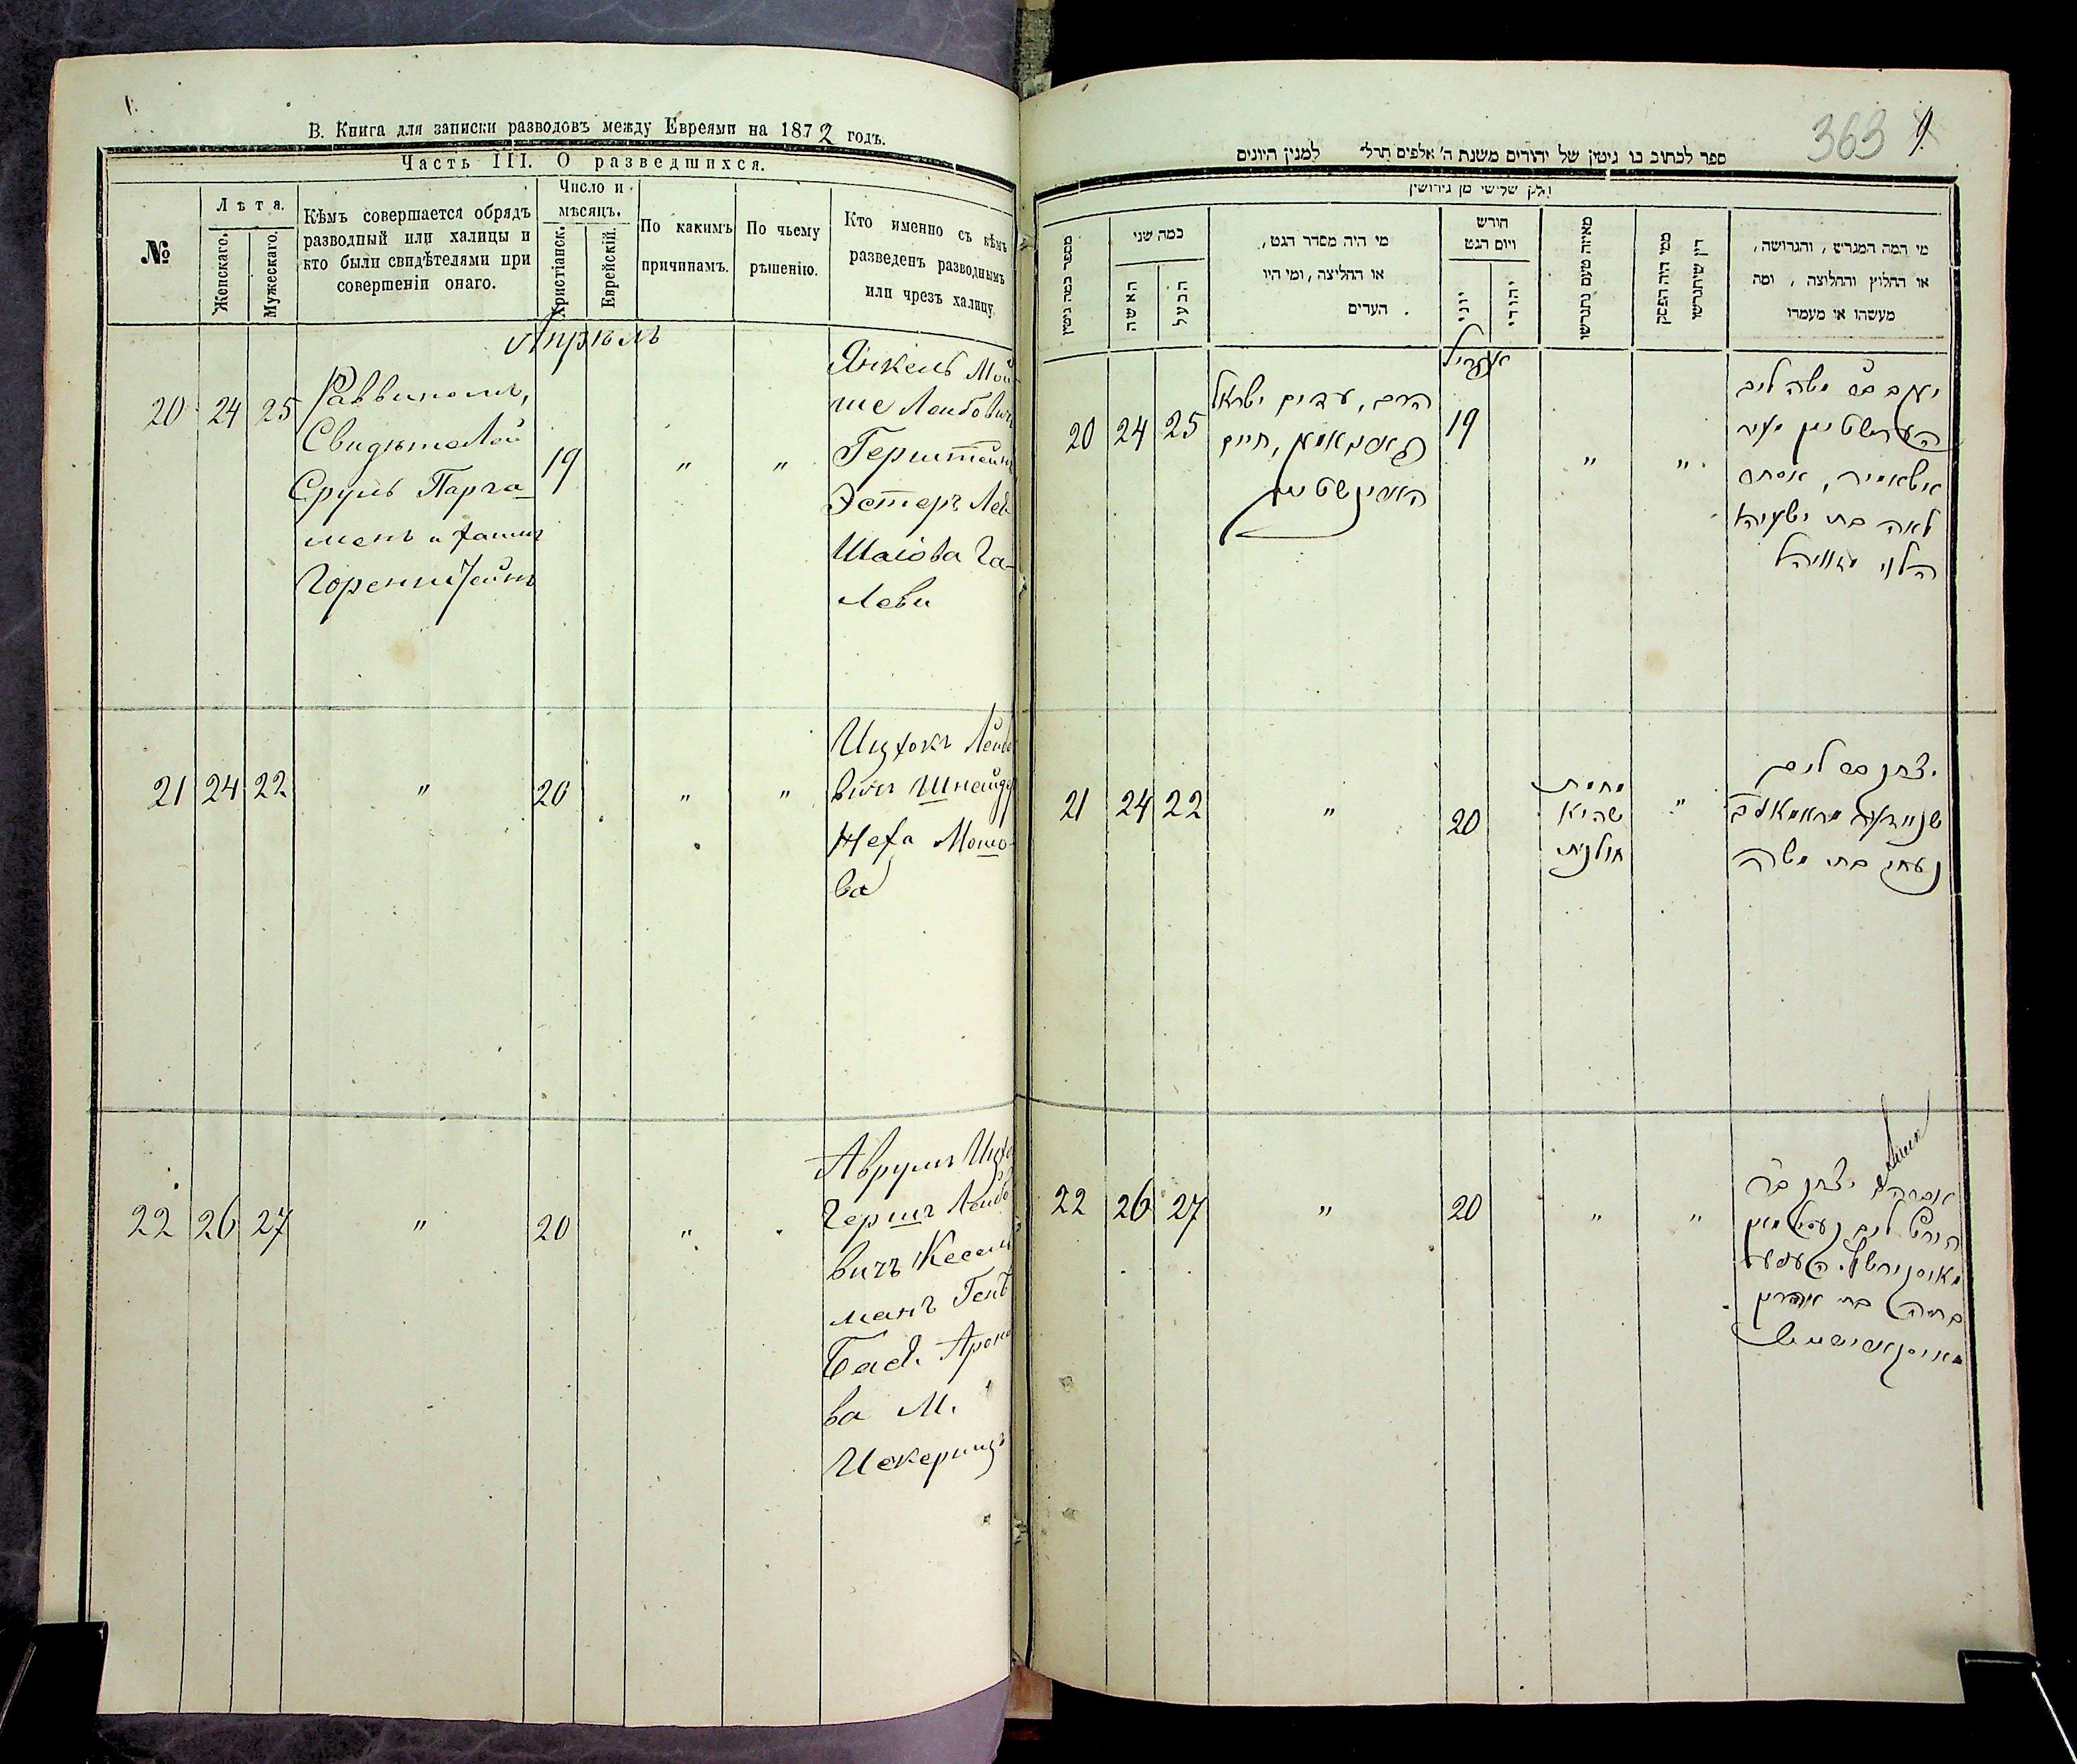 В. Книга для записки разводовъ между Евреями на 1872 годъ.
Часть III. О разведшихся.
№
Лѣта.
Женскаго.
Мужескаго.
Кѣмъ совершается обрядъ
разводный или халицы и
кто были свидѣтелями при
совершеніи онаго.
Число и
мѣсяцъ.
Христіанск.
Еврейскій.
По какимъ
причинамъ.
По чьему
рѣшенію.
Кто именно съ кѣмъ
разведенъ разводнымъ
или чрезъ халицу.
Апрѣль
20 24 25
Раввиномъ,
Свидѣтелей
Сруль Парга-
менъ и Хаимъ
Горенштейнъ
19 " "
Янкель Мой-
ше Лейбовичъ
Герштейнъ
Эстеръ Лея
Шаіова Га-
Леви
21 24 22 " 20 " "
Ицхокъ Лейбо
вичъ Шнайдер
Неха Мошо-
ва
22 26 27 " 20 "
Аврумъ Ицхо
Гершъ Лейбо
вичъ Кесель
манъ Гень
Бася Ароно
ва М.
363 9
ספר לכתוב בו גיטין של יהודים משנת ה' אלפים תרל" למנין היונים
חלק שלישי מן גירושין
מספר כמה גיטין
כמה שני
האשה
הבעל
מי היה מסדר הגט,
או החליצה, ומי היו
העדים.
חורש
ויום הגט
יוני
יהודי
מאיזה טעם נתגרשו
ממי היה הפסק
דין שיתגרשו
מי המה המגרש, והגרושה,
או החלוץ והחליצה, ומה
מעשהו או מעמדו
אפריל
20 24 25
הרב, עדים ישראל
חיים
הארינשטיין
19 " "
יעקב משה ליב
הערשטיין
אסתר
לאה בת ישעיה
הלוי
21 24 22 " 20
מחמת
שהיא
חולנית
"
יצחק ליב
שניידער
נעחי בת משה
22 26 27 " 20 " "
אברהם יצחק בר
הירש ליב
בת אהרן